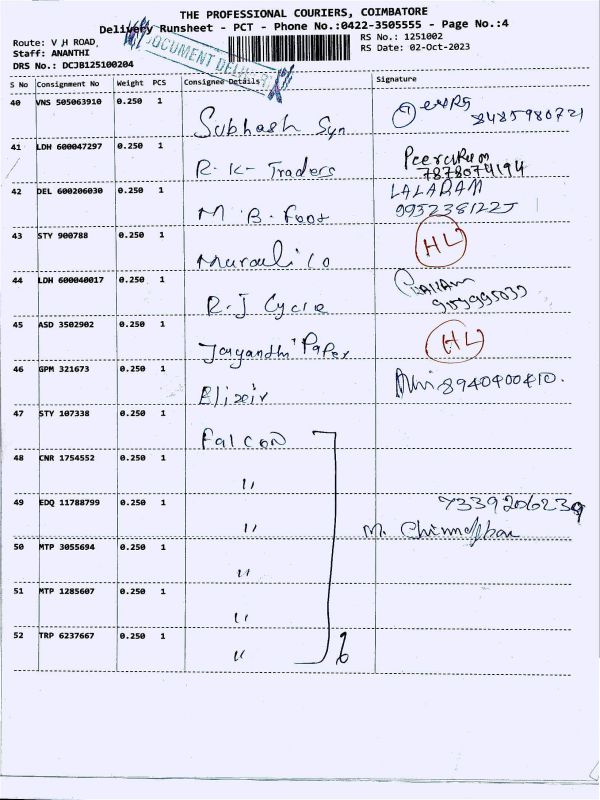 THE PROFESSIONAL COURIERS, COIMBATORE
Delivery Runsheet - PCT - Phone No.:0422-3505555 - Page No.:4
Route: V H ROAD,
Staff: ANANTHI
DRS No.: DCJB125100204
RS No.: 1251002
RS Date: 02-Oct-2023
DOCUMENT
S No Consignment No Weight PCS Consignee Details Signature
40 VNS 505063910 0.250 1 Subhash Syn 8485980721
41 LDH 600047297 0.250 1 R.K- Traders
7878074194
42 DEL 600206030 0.250 1 M.B. Foot LALARAM
43 STY 900788 0.250 1 Murauli Co HL
44 LDH 600040017 0.250 1 R.J Cycle
45 ASD 3502902 0.250 1 Jayandhi Paper HL
46 GPM 321673 0.250 1 Elixir 8940400410.
47 STY 107338 0.250 1 Falcon
48 CNR 1754552 0.250 1 "
49 EDQ 11788799 0.250 1 " 7339206239
M.
50 MTP 3055694 0.250 1 "
51 MTP 1285607 0.250 1 "
52 TRP 6237667 0.250 1 " 6